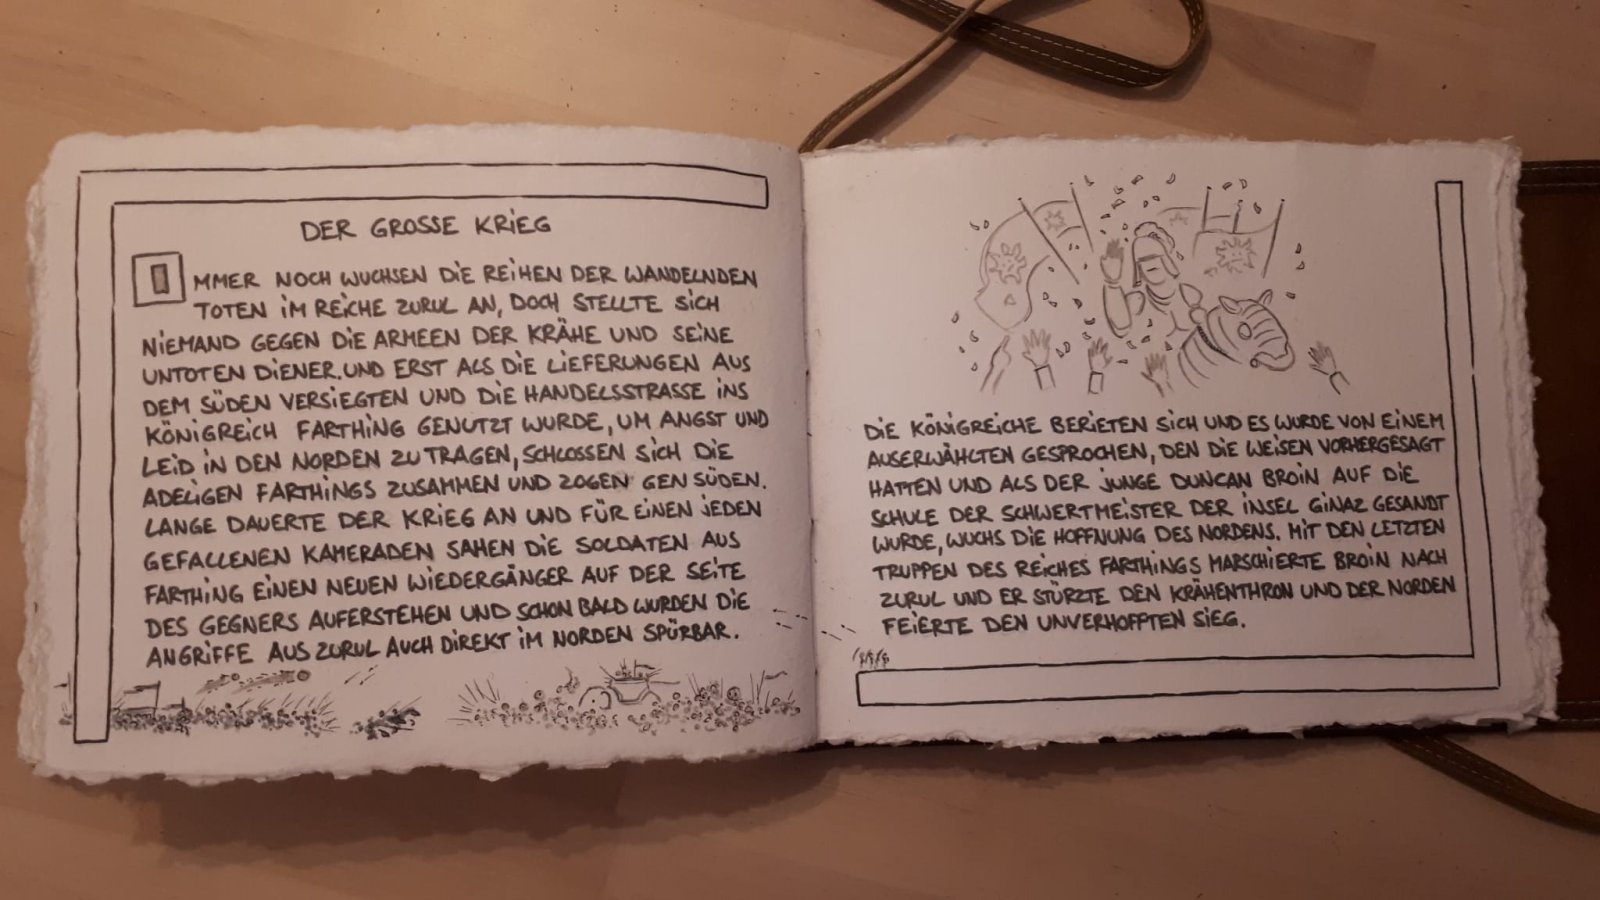 DER GROSSE KRiEG
IMMER NOCH WUCHSEN DiE REiHEN DER WANDELNDEN
TOTEN iM REiCHE ZURUL AN, DOCH STELLTE SiCH
NiEMAND GEGEN DiE ARMEEN DER KRÄHE UND SEiNE
UNTOTEN DiENER. UND ERST ALS DiE LiEFERUNGEN AUS
DEM SÜDEN VERSiEGTEN UND DiE HANDELSSTRASSE iNS
KÖNiGREiCH FARTHiNG GENUTZT WURDE, UM ANGST UND
LEiD iN DEN NORDEN ZU TRAGEN, SCHLOSSEN SiCH DiE
ADELiGEN FARTHiNGS ZUSAMMEN UND ZOGEN GEN SÜDEN.
LANGE DAUERTE DER KRiEG AN UND FÜR EiNEN JEDEN
GEFALLENEN KAMERADEN SAHEN DiE SOLDATEN AUS
FARTHiNG EiNEN NEUEN WiEDERGÄNGER AUF DER SEiTE
DES GEGNERS AUFERSTEHEN UND SCHON BALD WURDEN DiE
ANGRiFFE AUS ZURUL AUCH DiREKT iM NORDEN SPÜRBAR.
DiE KÖNiGREiCHE BERiETEN SiCH UND ES WURDE VON EiNEM
AUSERWÄHLTEN GESPROCHEN, DEN DiE WEiSEN VORHERGESAGT
HATTEN UND ALS DER JUNGE DUNCAN BROiN AUF DiE
SCHULE DER SCHWERTMEiSTER DER iNSEL GiNAZ GESANDT
WURDE, WUCHS DiE HOFFNUNG DES NORDENS. MiT DEN LETZTEN
TRUPPEN DES REiCHES FARTHiNGS MARSCHiERTE BROiN NACH
ZURUL UND ER STÜRZTE DEN KRÄHENTHRON UND DER NORDEN
FEiERTE DEN UNVERHOFFTEN SiEG.